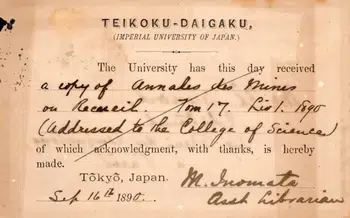 TEIKOKU-DAIGAKU,
(IMPERIAL UNIVERSITY OF JAPAN.)
The University has this day received
a copy of Annales des Mines
ou Recueil. Tom 17. Lis 1. 1890
(Addressed to the College of Science)
of which acknowledgment, with thanks, is hereby
made.
Tōkyō, Japan.
Sep 16th 1890.
M. Inomata
Asst Librarian